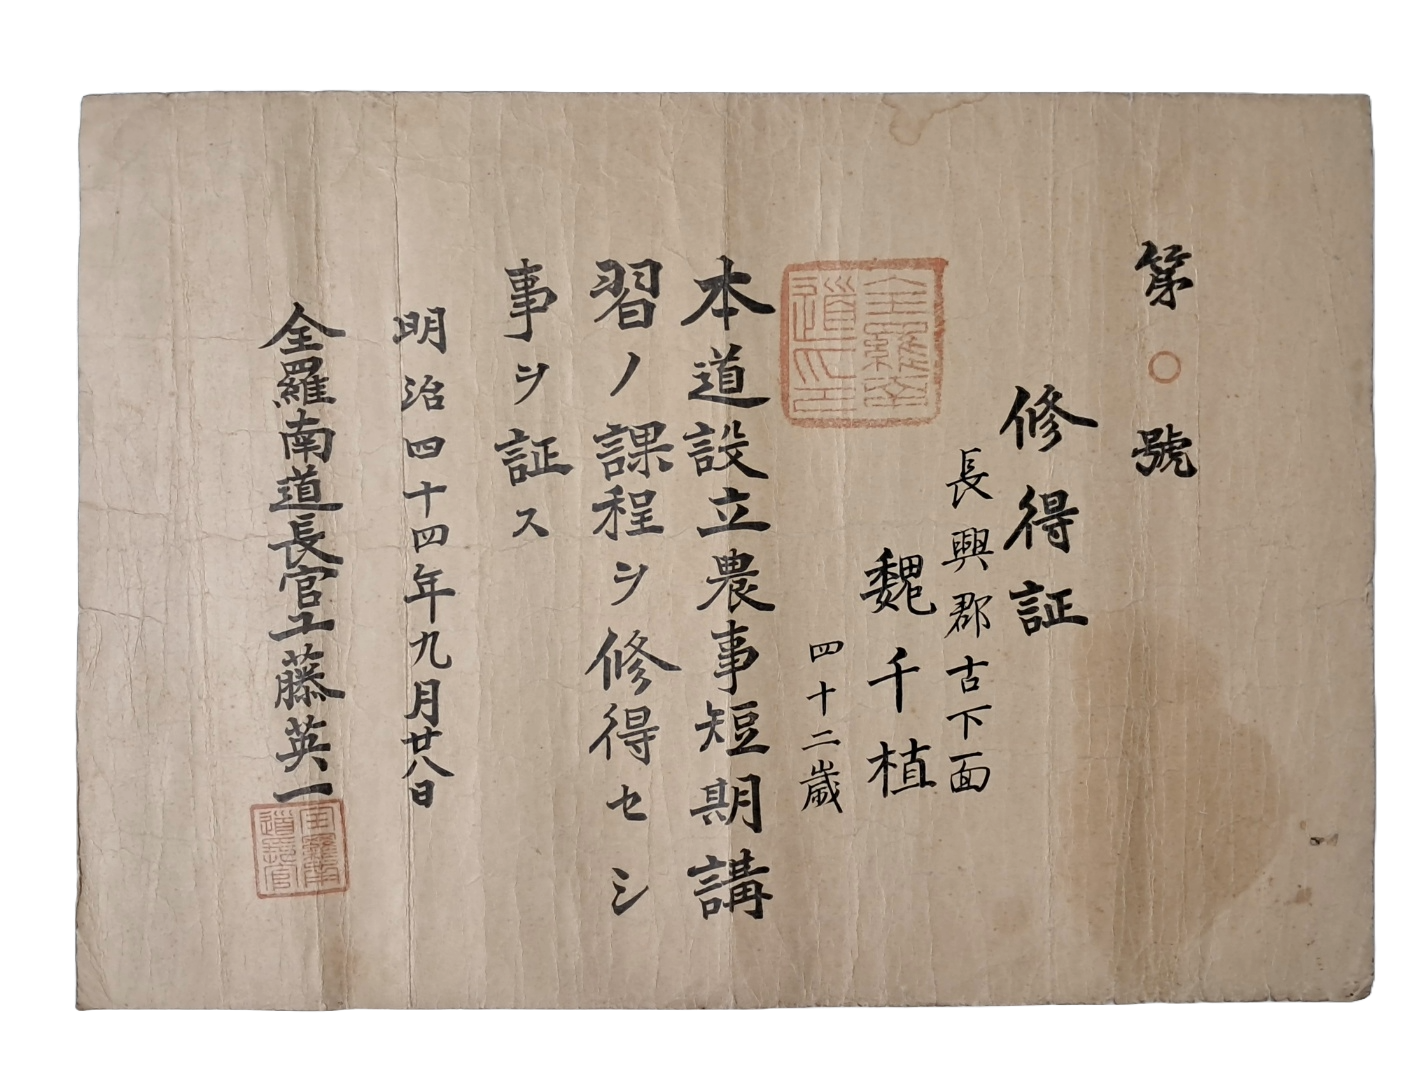 第○號
修得証
長興郡古下面
魏千植
四十二歳
全羅南道之印
本道設立農事短期講
習ノ課程ヲ修得セシ
事ヲ証ス
明治四十四年九月廿八日
全羅南道長官工藤英一
全羅南道長官